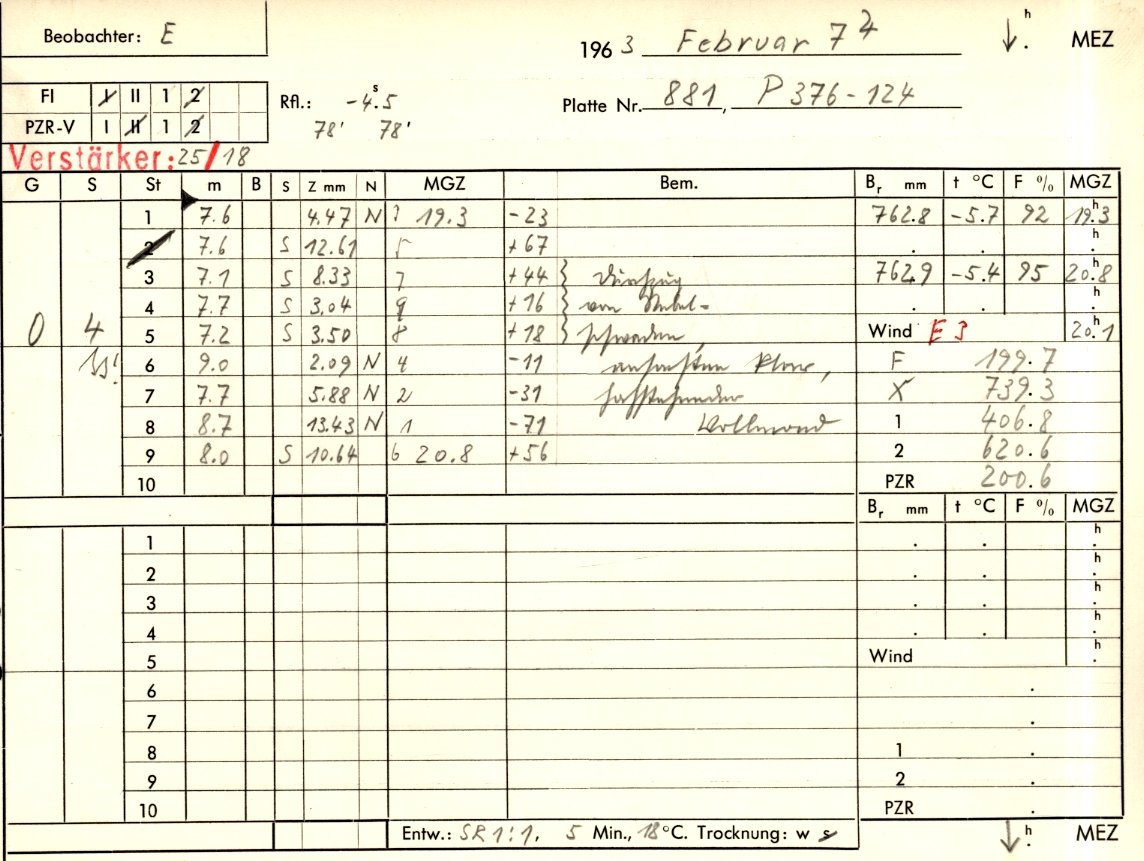 Beobachter: E
1963 Februar 7 ↓ h. MEZ
FI I II 1 2
Rfl.: -4.5 s
Platte Nr. 881, P 376-124
PZR-V I II 1 2
78' 78'
Verstärker: 25/18
G S St m B S Z mm N MGZ Bem. Br mm t °C F % MGZ
1 7.6 4.47 N 3 19.3 -23 762.8 -5.7 92 19h.3
2 7.6 S 12.61 5 +67 . . h.
3 7.1 S 8.33 7 +44 } Durchzug 762.9 -5.4 95 20h.8
4 7.7 S 3.04 9 +16 } von Nebel- . . h.
0 4 5 7.2 S 3.50 8 +18 } schwaden, Wind E 3 20h.1
6 9.0 2.09 N 4 -11 ansonsten klar, F 199.7
7 7.7 5.88 N 2 -31 hochstehender X 739.3
8 8.7 13.43 N 1 -71 Vollmond 1 406.8
9 8.0 S 10.64 6 20.8 +56 2 620.6
10 PZR 200.6
Br mm t °C F % MGZ
1 . . h.
2 . . h.
3 . . h.
4 . . h.
5 Wind h.
6 .
7 .
8 1 .
9 2 .
10 PZR .
Entw.: SR 1:1, 5 Min., 18°C. Trocknung: w s ↓ h. MEZ